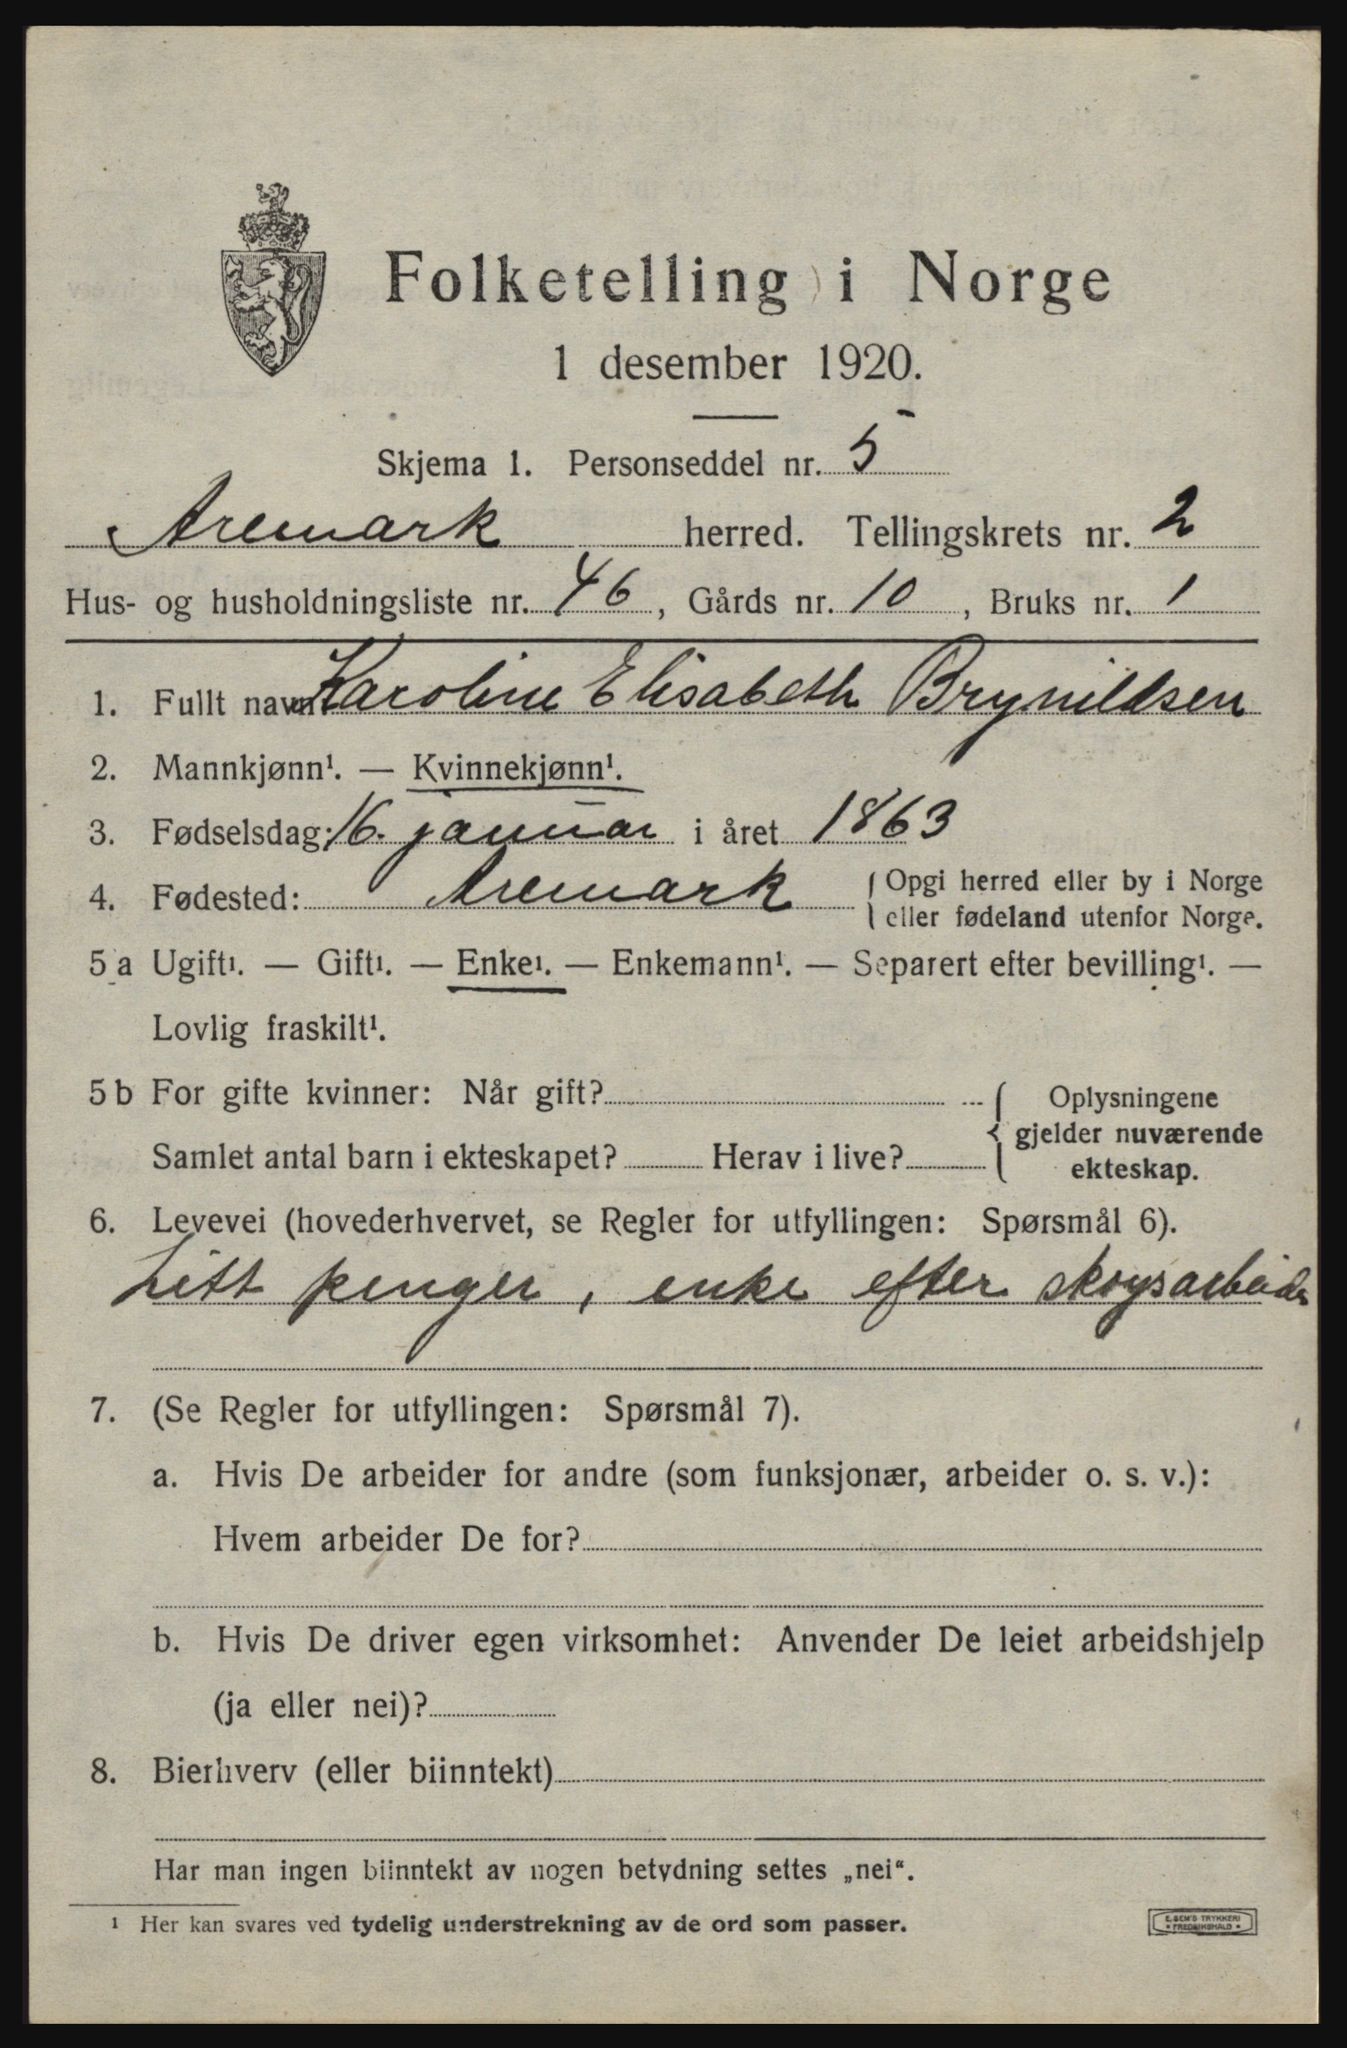 Folketelling i Norge
1 desember 1920.
Skjema 1. Personseddel nr. 5
Aremark herred. Tellingskrets nr. 2
Hus- og husholdningsliste nr. 46, Gårds nr. 10, Bruks nr. 1
1. Fullt navn: Karoline Elisabeth Brynildsen
2. Mannkjønn¹. — Kvinnekjønn¹.
3. Fødselsdag: 16. januar i året 1863
4. Fødested: Aremark { Opgi herred eller by i Norge
eller fødeland utenfor Norge.
5 a Ugift¹. — Gift¹. — Enke¹. — Enkemann¹. — Separert efter bevilling¹. —
Lovlig fraskilt¹.
5 b For gifte kvinner: Når gift? { Oplysningene
gjelder nuværende
Samlet antal barn i ekteskapet? Herav i live?
ekteskap.
6. Levevei (hovederhvervet, se Regler for utfyllingen: Spørsmål 6).
Litt penger, enke efter skogsarbeider
7. (Se Regler for utfyllingen: Spørsmål 7).
a. Hvis De arbeider for andre (som funksjonær, arbeider o. s. v.):
Hvem arbeider De for?
b. Hvis De driver egen virksomhet: Anvender De leiet arbeidshjelp
(ja eller nei)?
8. Bierhverv (eller biinntekt)
Har man ingen biinntekt av nogen betydning settes „nei“.
¹ Her kan svares ved tydelig understrekning av de ord som passer.
E. SEM'S TRYKKERI
• FREDRIKSHALD •